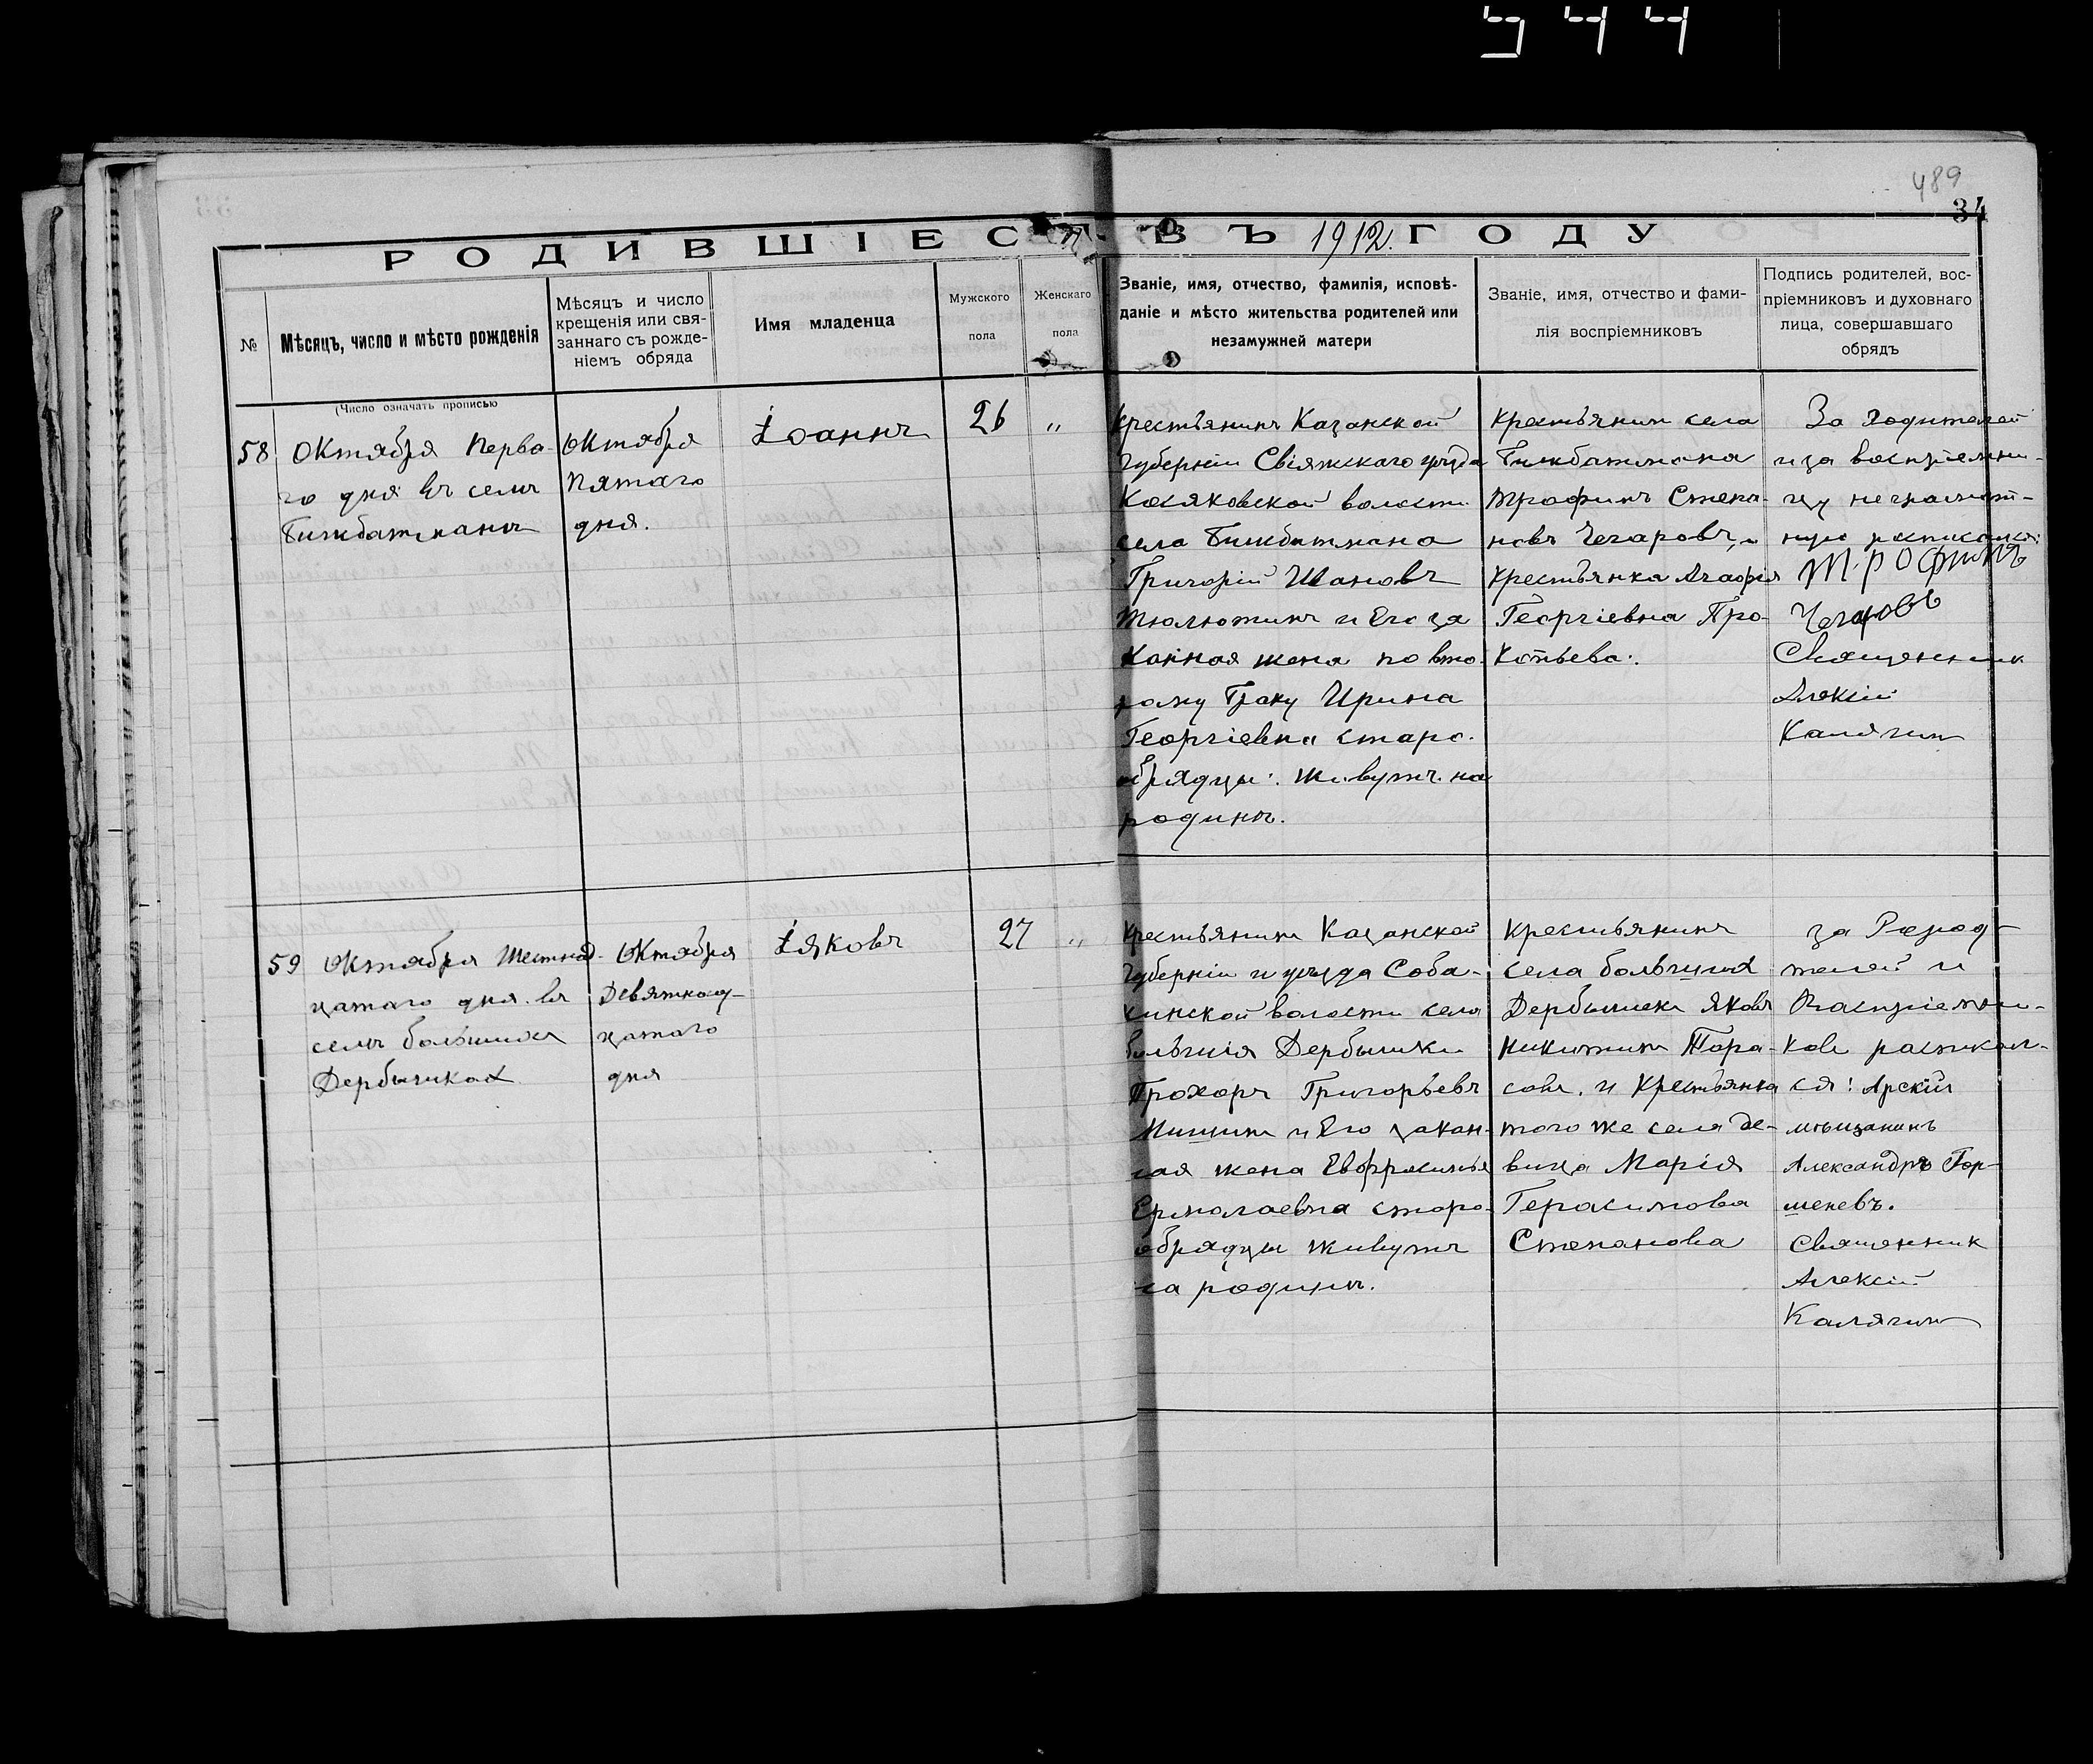 944
489
34
РОДИВШІЕСЯ ВЪ 1912 ГОДУ
№
Мѣсяцъ, число и мѣсто рожденія
Мѣсяцъ и число
крещенія или свя-
заннаго съ рожде-
ніемъ обряда
Имя младенца
Мужского
пола
Женскаго
пола
Званіе, имя, отчество, фамилія, исповѣ-
даніе и мѣсто жительства родителей или
незамужней матери
Званіе, имя, отчество и фами-
лія воспріемниковъ
Подпись родителей, вос-
пріемниковъ и духовнаго
лица, совершавшаго
обрядъ
(Число означать прописью
58
Октября Перва-
го дня въ селѣ
Бижбатманѣ
Октября
Пятаго
дня.
Іоаннъ
26
"
Крестьянинъ Казанской
Губерніи Свіяжскаго уѣзда
Косяковской волости
села Бижбатмана
Григорій Ивановъ
Тюлютинъ и Его за
конная жена по вто-
рому браку Ирина
Георгіевна старо-
обрядцы. живутъ на
родинѣ.
Крестьянинъ села
Бижбатмана
Трофимъ Степа-
новъ Чегаровъ, и
Крестьянка Агафія
Георгіевна Про-
копьева.
За родителей
и за воспріемни-
цу неграмот-
ную росписался:
Трофимъ
Чегаровъ
Священник
Алекій
Калягин
59
Октября Шестнад-
цатаго дня въ
селѣ большихъ
Дербышках
Октября
Девятнад-
цатаго
дня
Іяковъ
27
"
Крестьянинъ Казанской
Губерніи и уѣзда Соба-
кинской волости села
большія Дербышки
Прохоръ Григорьевъ
Мишинъ и Его закон-
ная жена Евфросинья
Ермолаевна старо-
обрядцы живутъ
на родинѣ.
Крестьянинъ
села большихъ
Дербышекъ Яковъ
Никитинъ Тара-
совъ. и Крестьянка
того же села де-
вица Марія
Герасимова
Степанова
за Рород-
телей и
Воспріемни-
ков росписал-
ся: Арскій
мѣщанинъ
Александръ Гор-
шеневъ.
Священник
Алексій
Калягин